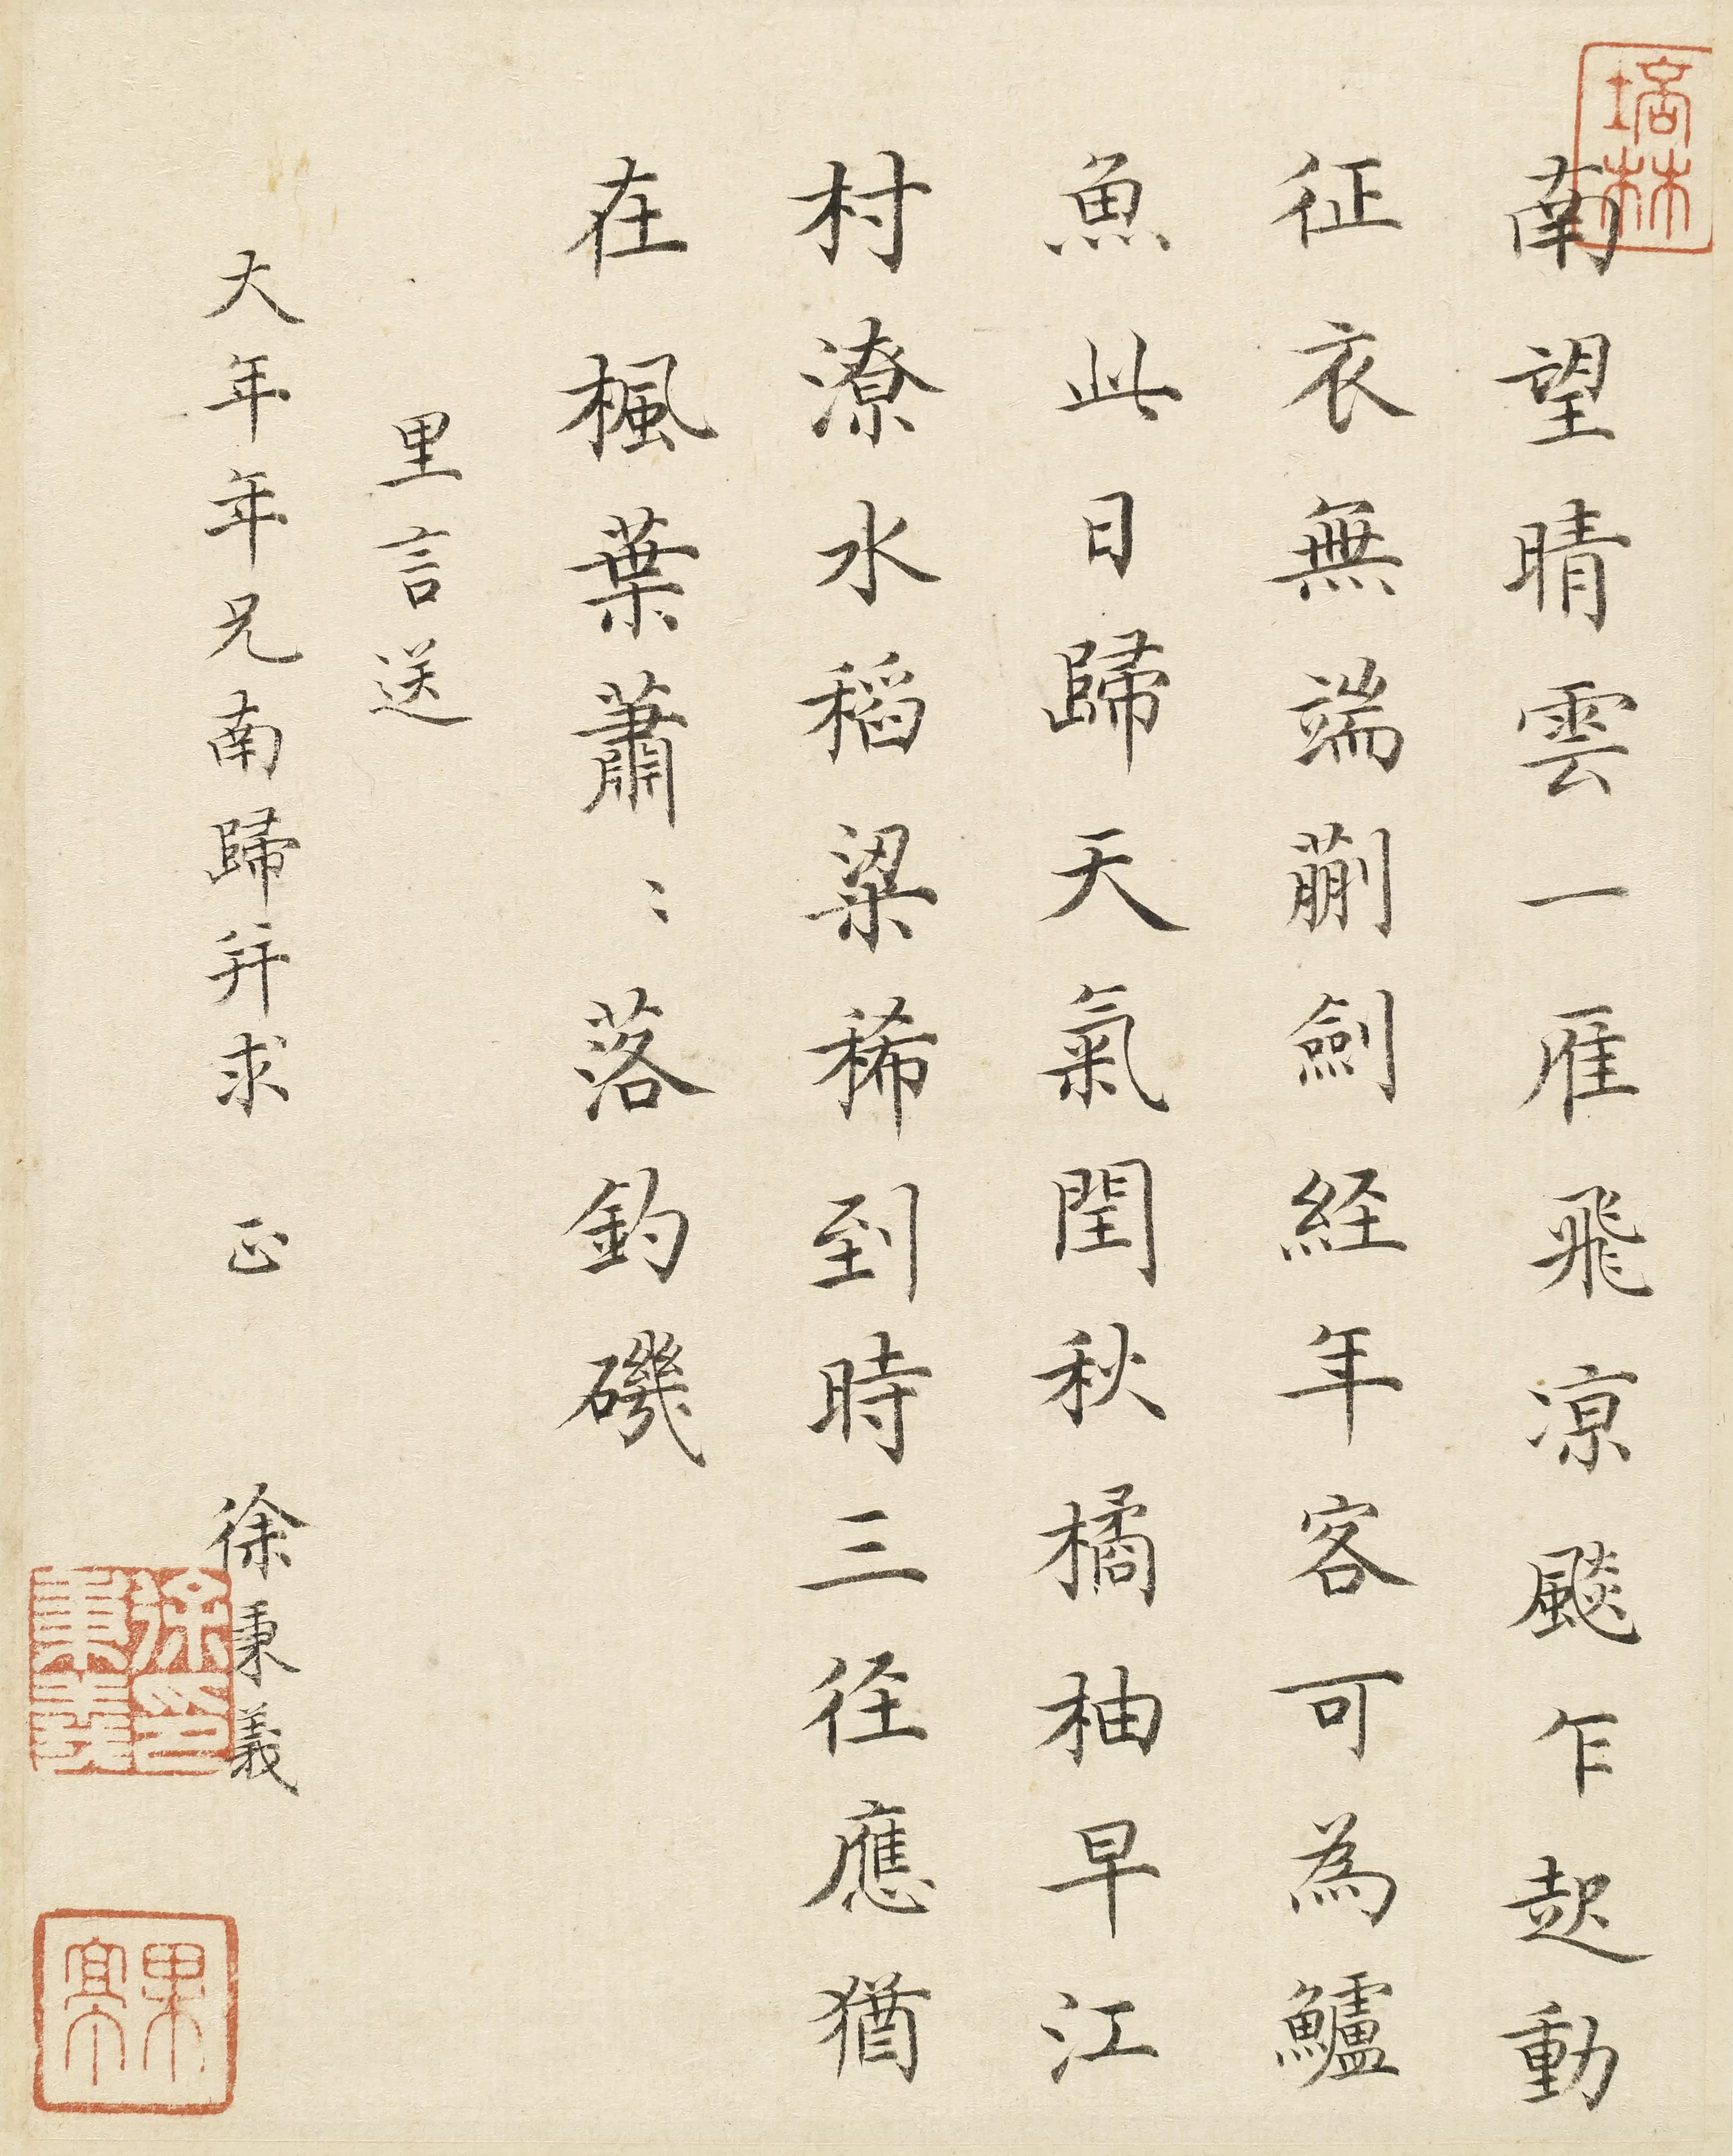 南望晴雲一雁飛凉颷乍起動
征衣無端蒯劍経年客可為鱸
魚此日歸天氣閏秋橘柚早江
村潦水稻粱稀到時三径應猶
在楓葉蕭〻落釣磯
里言送
大年年兄南歸并求 正 徐秉義
徐秉義印
果亭